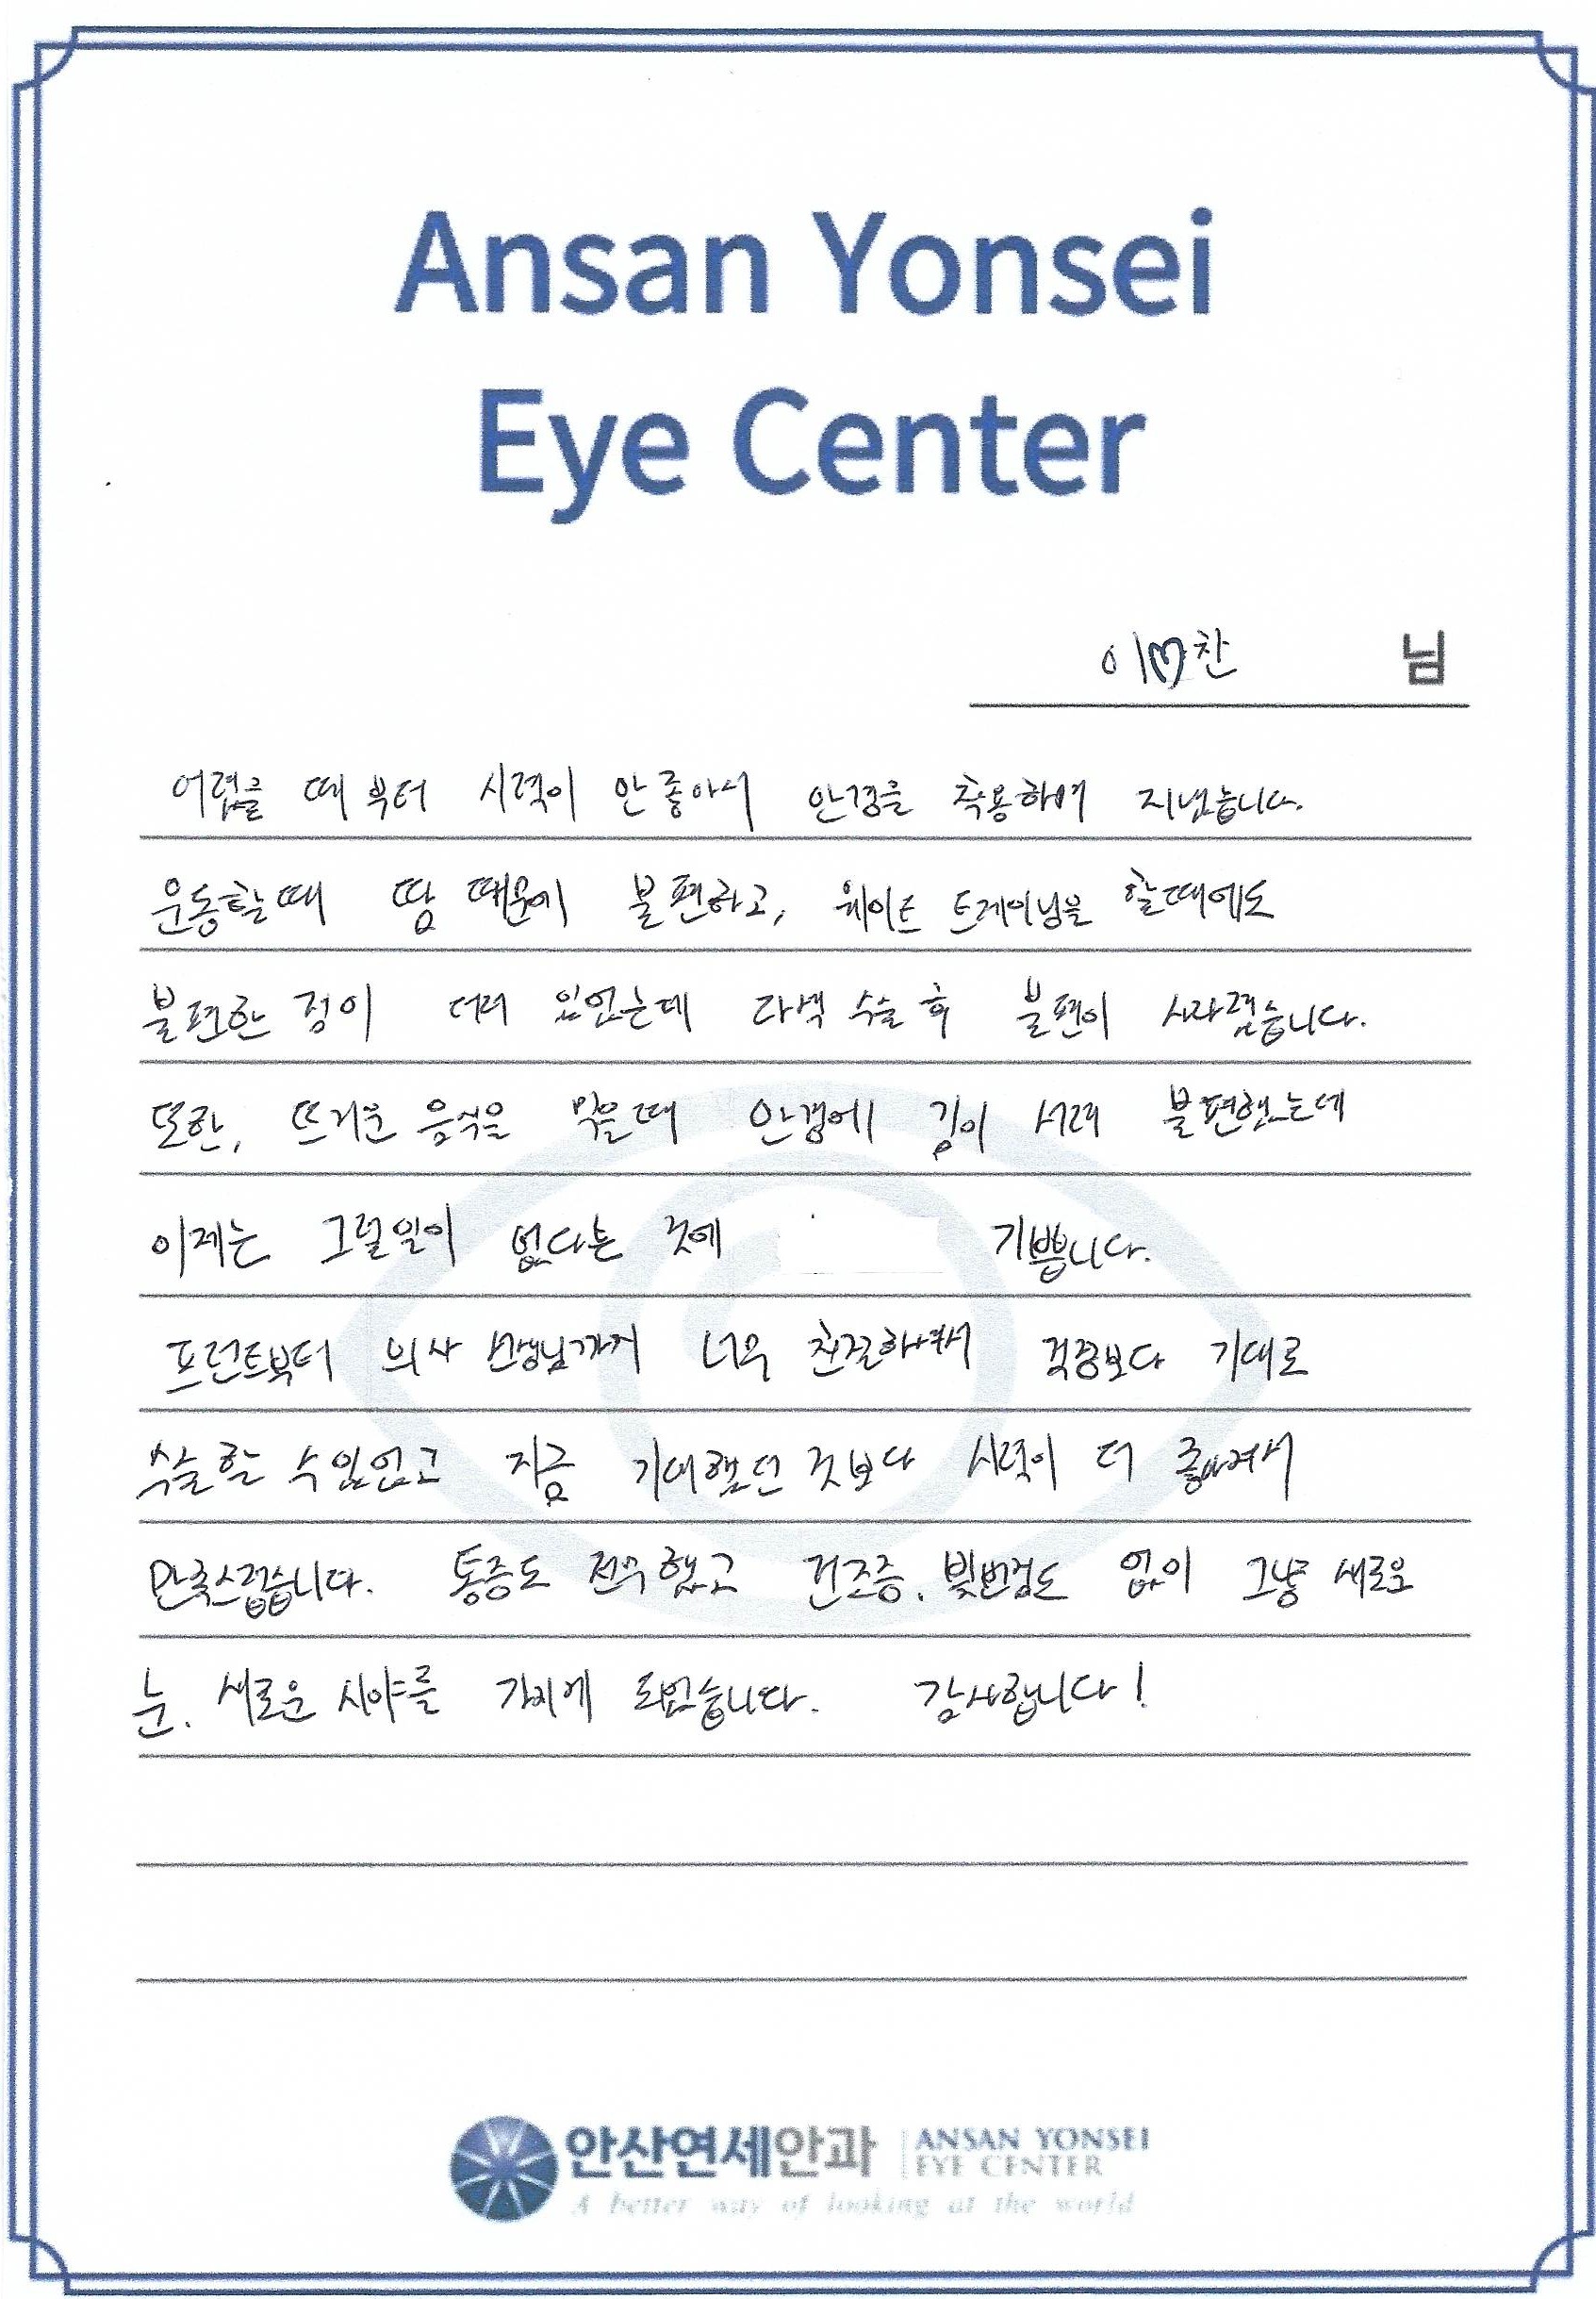 Ansan Yonsei
Eye Center
이♡찬 님
어렸을 때부터 시력이 안좋아서 안경을 착용하며 지냈습니다.
운동할때 땀 때문에 불편하고, 웨이트 트레이닝을 할때에도
불편한 점이 더러 있었는데 라섹 수술 후 불편이 사라졌습니다.
또한, 뜨거운 음식을 먹을때 안경에 김이 서려 불편했는데
이제는 그럴일이 없다는 것에 기쁩니다.
프런트부터 의사 선생님까지 너무 친절하셔서 걱정보다 기대로
수술할 수있었고 지금 기대했던 것보다 시력이 더 좋아져서
만족스럽습니다. 통증도 전무했고 건조증, 빛번짐도 없이 그냥 새로운
눈, 새로운 시야를 가지게 되었습니다. 감사합니다!
안산연세안과 ANSAN YONSEI
EYE CENTER
A better way of looking at the world